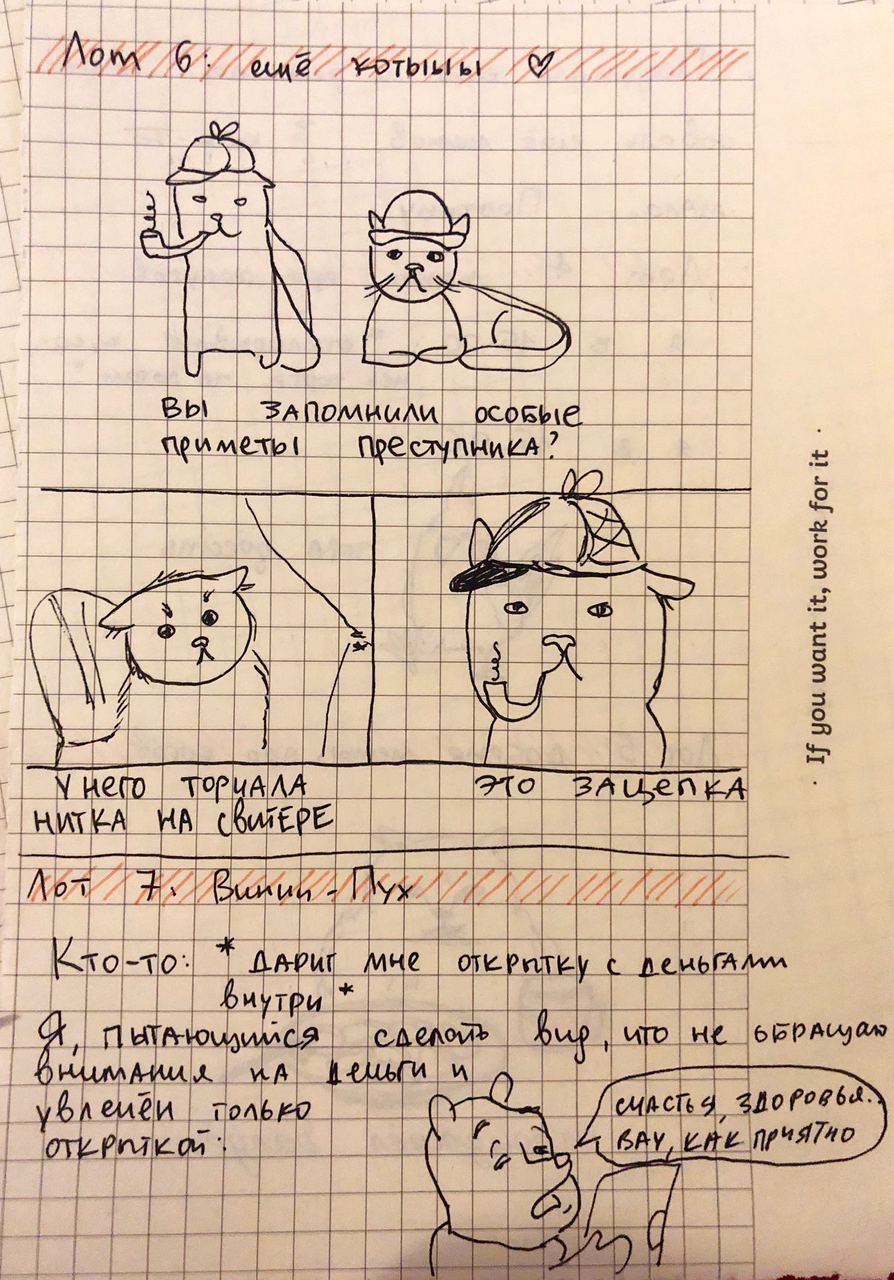 Лот 6: ещё котыыы ♡
ВЫ ЗАПОМНИЛИ ОСОБЫЕ
ПРИМЕТЫ ПРЕСТУПНИКА?
У НЕГО ТОРЧАЛА
НИТКА НА СВИТЕРЕ
ЭТО ЗАЦЕПКА
Лот 7. Винни-Пух
Кто-то: * ДАРИТ МНЕ ОТКРЫТКУ С ДЕНЬГАМИ
внутри *
Я, ПЫТАЮЩИЙСЯ СДЕЛАТЬ ВИД, ЧТО НЕ ОБРАЩАЮ
ВНИМАНИЯ НА ДЕНЬГИ И
УВЛЕЧЁН ТОЛЬКО
ОТКРЫТКОЙ:
СЧАСТЬЯ, ЗДОРОВЬЯ..
ВАУ, КАК ПРИЯТНО
· If you want it, work for it ·